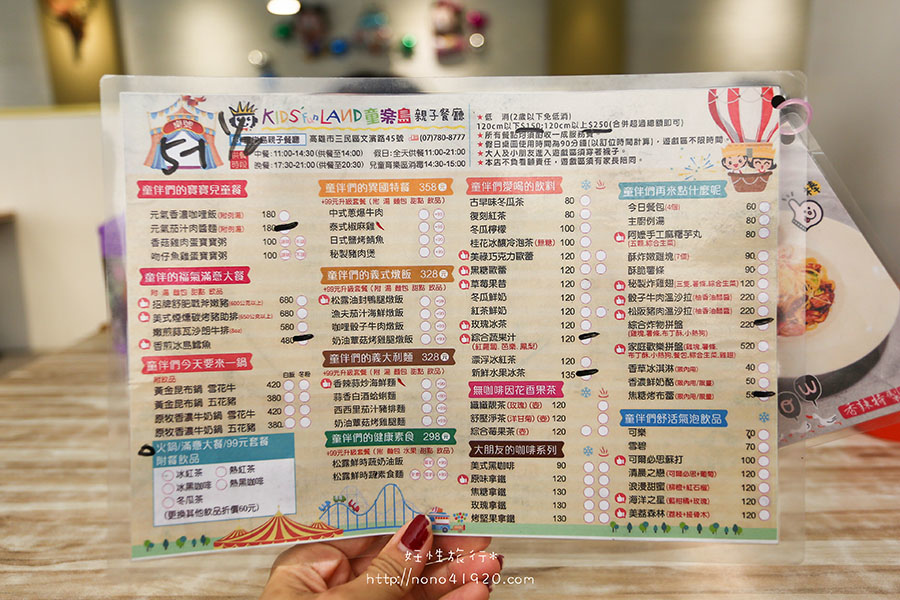 桌號
51
KIDS' fun LAND 童樂島 親子餐廳
高雄市三民區文濱路45號 (07)780-8777
中餐: 11:00-14:30 (供餐至14:00) 假日: 全天供餐11:00-21:00
晚餐: 17:30-21:00 (供餐至20:30) 兒童育樂區消毒14:30-15:00
★低 消(2歲以下免低消)
120cm以下$150;120cm以上$250(合併超過總額即可)
★所有餐點均須酌收一成服務費
★假日桌回使用時間為90分鐘(以訂位時間計算),遊戲區不限時間
★大人及小朋友進入遊戲區須穿著襪子。
★本店不負看顧責任,遊戲區須有家長陪同。
童伴們的寶寶兒童餐
元氣香濃咖哩飯(附例湯) 180
元氣茄汁肉醬麵(附例湯) 180
香菇雞肉蛋寶寶粥 100
吻仔魚雞蛋寶寶粥 100
童伴的福氣滿意大餐
附 湯 麵包 甜點 飲品
招牌舒肥戰斧豬排(600公克以上) 680
美式煙燻碳烤豬肋排(650公克以上) 680
嫩煎蒜瓦沙朗牛排(8oz) 580
香煎冰島鱈魚 480
童伴們今天要來一鍋
附飲品 白飯 冬粉
黃金昆布鍋 雪花牛 420
黃金昆布鍋 五花豬 380
原牧香濃牛奶鍋 雪花牛 420
原牧香濃牛奶鍋 五花豬 380
火鍋/滿意大餐/99元套餐
附餐飲品
冰紅茶 熱紅茶
冰黑咖啡 熱黑咖啡
冬瓜茶
(更換其他飲品折價60元)
童伴們的異國特餐 358元
+99元升級套餐(附 湯 麵包 甜點 飲品)
中式蔥爆牛肉
泰式椒麻雞
日式鹽烤鯖魚
秘製豬肉煲
童伴們的義式燉飯 328元
+99元升級套餐(附 湯 麵包 甜點 飲品)
松露油封鴨腿燉飯
漁夫茄汁海鮮燉飯
咖哩骰子牛肉燉飯
奶油蕈菇烤雞燉飯
童伴們的義大利麵 328元
+99元升級套餐(附 湯 麵包 甜點 飲品)
香辣蒜炒海鮮麵
蒜香白酒蛤蜊麵
西西里茄汁豬排麵
奶油蕈菇烤雞腿麵
童伴們的健康素食 298元
+99元升級套餐(附 麵包 水果 甜點 飲品)
松露鮮時蔬奶油飯
松露鮮時蔬素食麵
童伴們愛喝的飲料
古早味冬瓜茶 80
復刻紅茶 80
冬瓜檸檬 100
桂花冰釀冷泡茶(無糖) 100
美祿巧克力歐蕾 120
黑糖歐蕾 120
草莓果昔 120
冬瓜鮮奶 120
紅茶鮮奶 120
玫瑰冰茶 120
綜合蔬果汁 120
(紅蘿蔔、芭樂、鳳梨)
漂浮冰紅茶 120
新鮮水果冰茶 135
無咖啡因花香果茶
纖纖靚茶(玫瑰)(壺) 120
舒壓淨茶(洋甘菊)(壺) 120
綜合莓果茶(壺) 120
大朋友的咖啡系列
美式黑咖啡 90
原味拿鐵 120
焦糖拿鐵 130
玫瑰拿鐵 130
烤堅果拿鐵 130
童伴們再來點什麼呢
今日餐包(4個) 60
主廚例湯 80
阿嬤手工麻糬芋丸
(五顆,綜合生菜) 80
酥炸嫩雞塊(7個) 90
酥脆薯條 90
秘製炸雞翅(三隻,薯條,綜合生菜) 120
骰子牛肉溫沙拉(柚香油醋醬) 220
松阪豬肉溫沙拉(柚香油醋醬) 220
綜合炸物拼盤 220
(雞塊,薯條,布丁酥,小熱狗)
家庭歡樂拼盤(雞塊,薯條, 320
布丁酥,小熱狗,餐包,綜合生菜,雞翅)
香草冰淇淋(限內用) 50
香濃鮮奶酪(限內用/限量) 50
焦糖烤布蕾(限內用/限量)
童伴們舒活氣泡飲品
可樂 70
雪碧 70
可爾必思蘇打 100
清晨之戀(可爾必思+葡萄) 120
浪漫甜蜜(柳橙+紅石榴) 120
海洋之星(藍柑橘+玫瑰) 120
美荔森林(荔枝+接骨木) 120
好性旅行*
http://nono41920.com